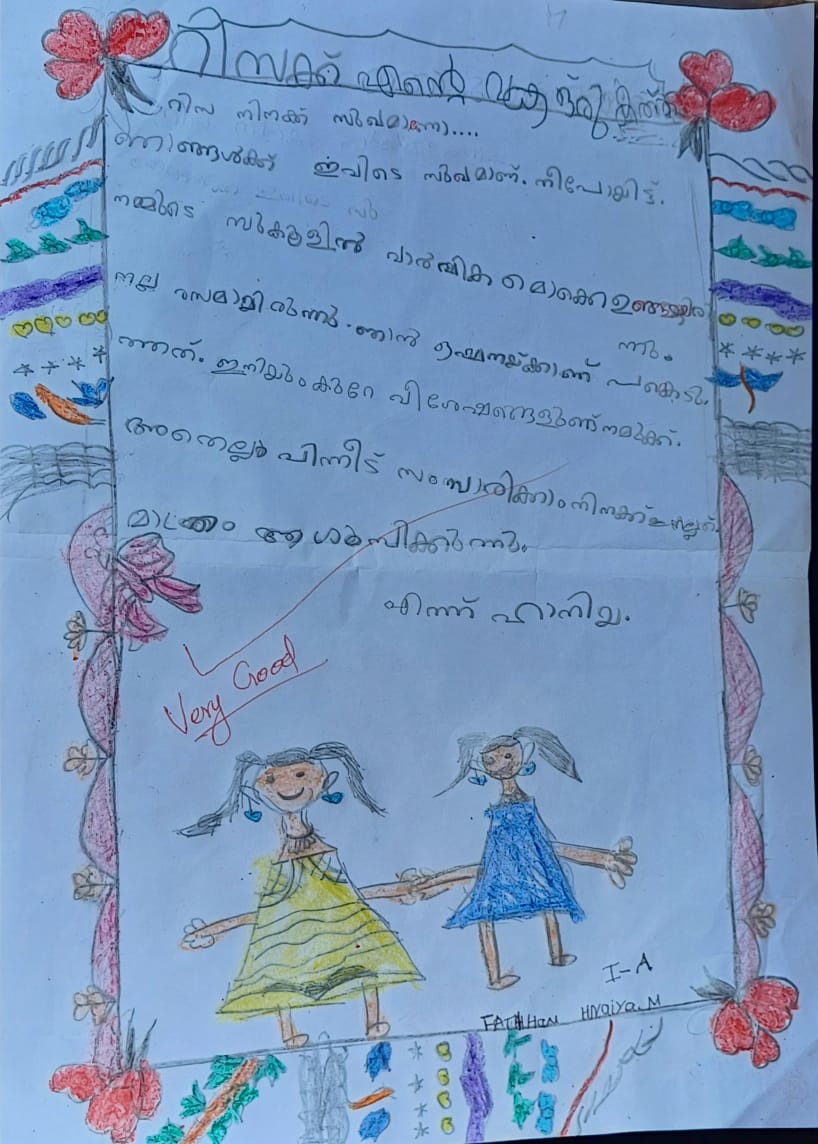 റിസക്ക് എന്റെ വക ഒരു കത്ത്
റിസ നിനക്ക് സുഖമാണോ....
ഞങ്ങൾക്ക് ഇവിടെ സുഖമാണ്. നീപോയിട്ട്.
നമ്മുടെ സ്കൂളിൽ വാർഷിക മൊക്കെ ഉണ്ടായിരു
ന്നു.
നല്ല രസമായിരുന്നു. ഞാൻ ഒപ്പനയ്ക്കാണ് പങ്കെടു
ത്തത്. ഇനിയും കുറേ വിശേഷങ്ങളുണ്ട് നമുക്ക്.
അതെല്ലാം പിന്നീട് സംസാരിക്കാം നിനക്ക് നല്ലത്
മാത്രം ആശംസിക്കുന്നു.
എന്ന് ഹാനിയ.
Very Good
I-A
HNaiya.M